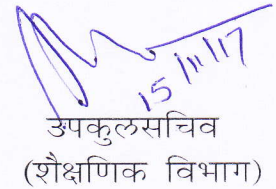 15/11/17
उपकुलसचिव
(शैक्षणिक विभाग)